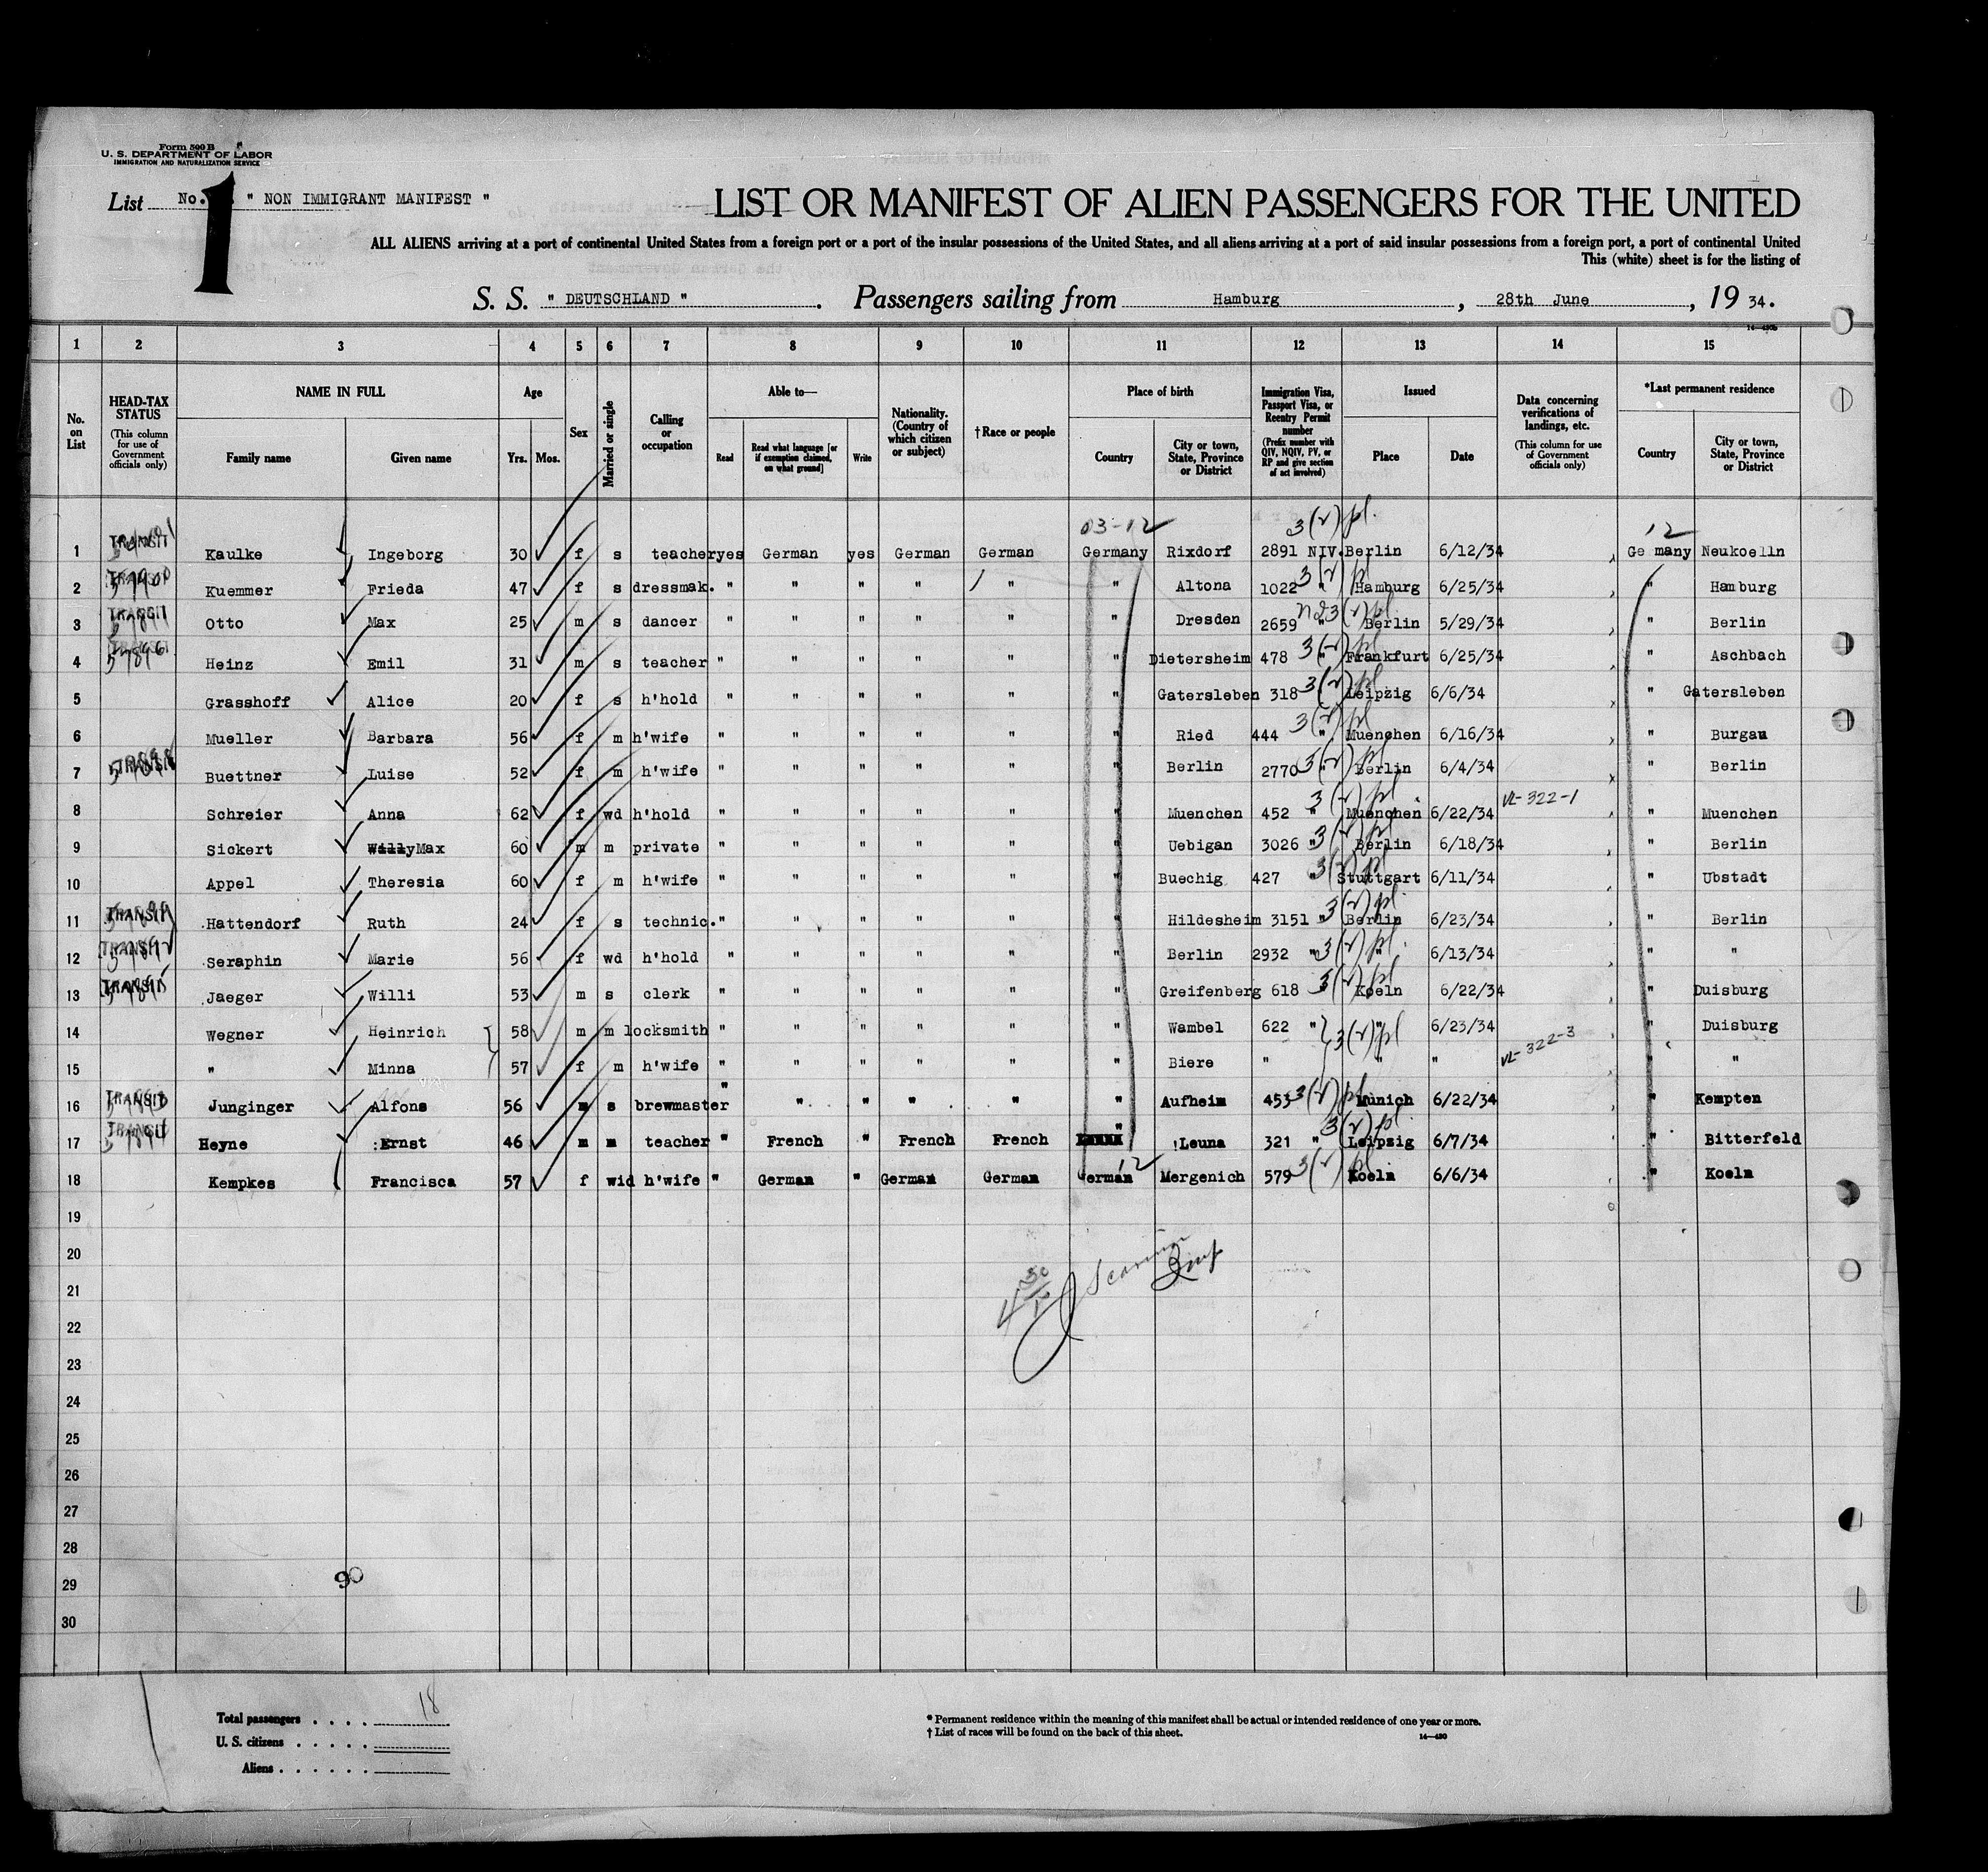 Form 500 B
U. S. DEPARTMENT OF LABOR
IMMIGRATION AND NATURALIZATION SERVICE
List No. 1 " NON IMMIGRANT MANIFEST " LIST OR MANIFEST OF ALIEN PASSENGERS FOR THE UNITED
ALL ALIENS arriving at a port of continental United States from a foreign port or a port of the insular possessions of the United States, and all aliens arriving at a port of said insular possessions from a foreign port, a port of continental United
This (white) sheet is for the listing of
S. S. " DEUTSCHLAND " . Passengers sailing from Hamburg , 28th June , 19 34.
1 2 3 4 5 6 7 8 9 10 11 12 13 14 15
No. on List
HEAD-TAX STATUS
(This column for use of Government officials only)
NAME IN FULL
Family name Given name
Age
Yrs. Mos.
Sex
Married or single
Calling or occupation
Able to—
Read Read what language [or if exemption claimed, on what ground] Write
Nationality. (Country of which citizen or subject)
† Race or people
Place of birth
Country City or town, State, Province or District
Immigration Visa, Passport Visa, or Reentry Permit number
(Prefix number with QIV, NQIV, PV, or RP and give section of act involved)
Issued
Place Date
Data concerning verifications of landings, etc.
(This column for use of Government officials only)
*Last permanent residence
Country City or town, State, Province or District
03-12 3(v) pl. 12
1 TRANSIT Kaulke Ingeborg 30 f s teacher yes German yes German German Germany Rixdorf 2891 NIV. Berlin 6/12/34 Ge many Neukoelln
2 Kuemmer Frieda 47 f s dressmak. " " " " " " Altona 1022 " 3(v) pl Hamburg 6/25/34 " Hamburg
3 TRANSIT Otto Max 25 m s dancer " " " " " " Dresden 2659 " 3(v) pl. Berlin 5/29/34 " Berlin
4 TRANSIT Heinz Emil 31 m s teacher " " " " " " Dietersheim 478 " 3(v) pl Frankfurt 6/25/34 " Aschbach
5 Grasshoff Alice 20 f s h'hold " " " " " " Gatersleben 318 3(v) pl Leipzig 6/6/34 " Gatersleben
6 Mueller Barbara 56 f m h'wife " " " " " " Ried 444 " 3(v) pl Muenchen 6/16/34 " Burgau
7 TRANSIT Buettner Luise 52 f m h'wife " " " " " " Berlin 2770 " 3(v) pl Berlin 6/4/34 " Berlin
8 Schreier Anna 62 f wd h'hold " " " " " " Muenchen 452 " 3(v) pl Muenchen 6/22/34 VL-322-1 " Muenchen
9 Sickert Willy Max 60 m m private " " " " " " Uebigan 3026 " 3(v) pl Berlin 6/18/34 " Berlin
10 Appel Theresia 60 f m h'wife " " " " " " Buechig 427 " 3(v) pl Stuttgart 6/11/34 " Ubstadt
11 TRANSIT Hattendorf Ruth 24 f s technic. " " " " " " Hildesheim 3151 " 3(v) pl. Berlin 6/23/34 " Berlin
12 TRANSIT Seraphin Marie 56 f wd h'hold " " " " " " Berlin 2932 " 3(v) pl. " 6/13/34 " "
13 TRANSIT Jaeger Willi 53 m s clerk " " " " " " Greifenberg 618 " 3(v) pl Koeln 6/22/34 " Duisburg
14 Wegner Heinrich 58 m m locksmith " " " " " " Wambel 622 " 3(v) pl " 6/23/34 " Duisburg
15 " Minna 57 f m h'wife " " " " " " Biere " " " VL-322-3 " "
16 TRANSIT Junginger Alfons 56 m s brewmaster " " " " " " Aufheim 453 3(v) pl Munich 6/22/34 " Kempten
17 TRANSIT Heyne Ernst 46 m m teacher " French " French French " Leuna 321 " 3(v) pl. Leipzig 6/7/34 " Bitterfeld
18 Kempkes Francisca 57 f wid h'wife " German " German German German 12 Mergenich 579 3(v) pl Koeln 6/6/34 " Koeln
19
20
21
22
23
24
25
26
27
28
29
30
90
Total passengers . . . . 18
U. S. citizens . . . . .
Aliens . . . . . .
* Permanent residence within the meaning of this manifest shall be actual or intended residence of one year or more.
† List of races will be found on the back of this sheet.
14—430